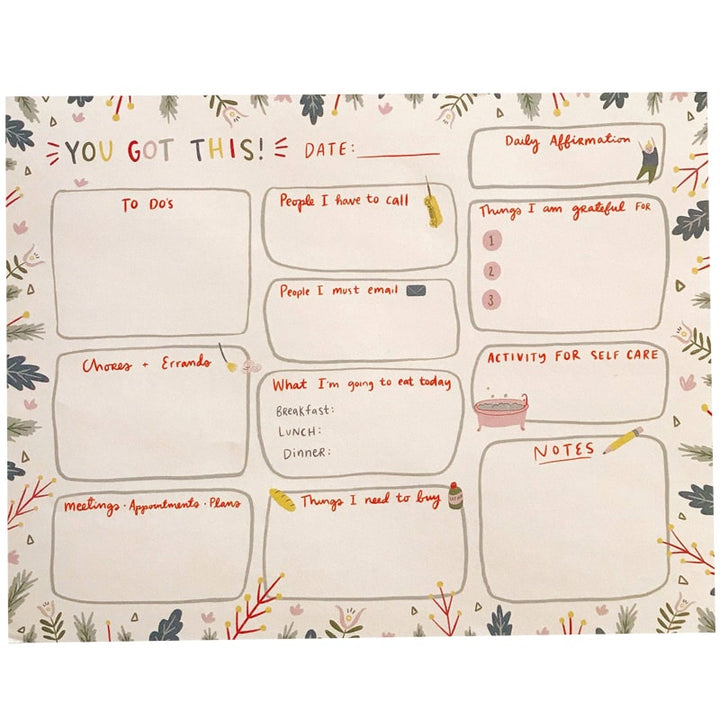 YOU GOT THIS!
DATE:
Daily Affirmation
TO DO'S
People I have to call
Things I am grateful FOR
1
2
3
People I must email
Chores + Errands
What I'm going to eat today
Breakfast:
LUNCH:
Dinner:
ACTIVITY FOR SELF CARE
Meetings · Appointments · Plans
Things I need to buy
NOTES